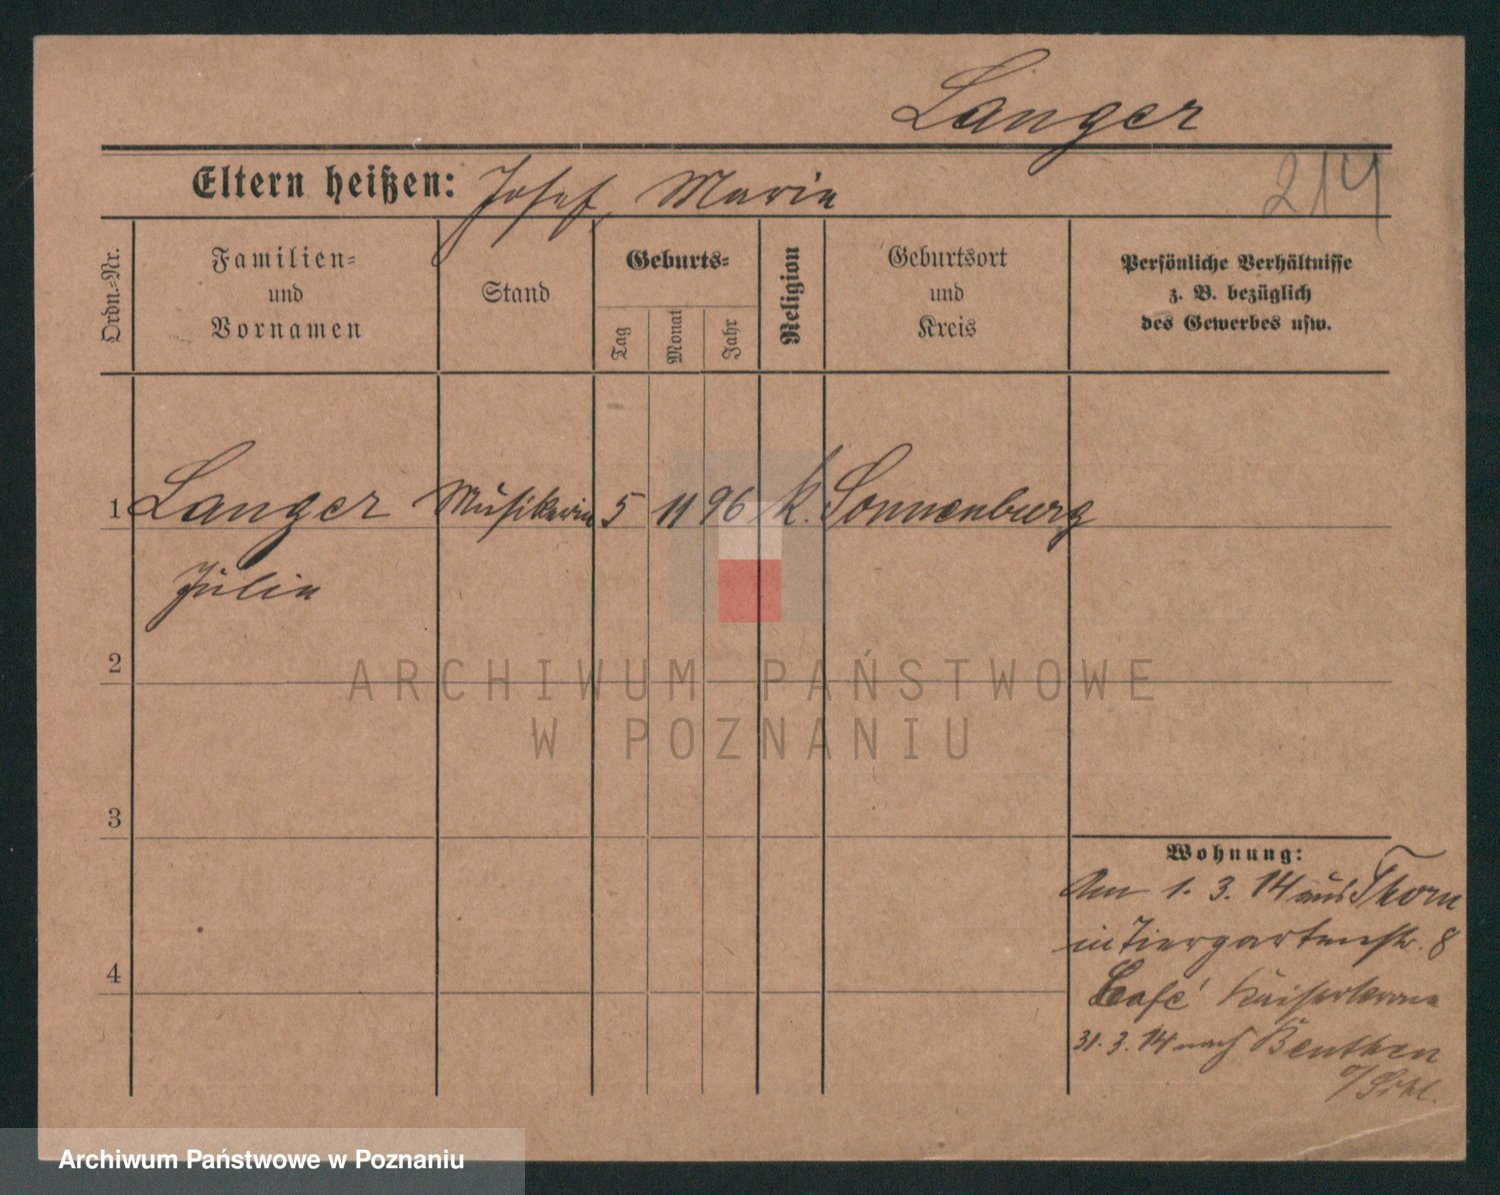 Langer
Eltern heißen: Josef, Maria
214
Ordn.-Nr.
Familien-
und
Vornamen
Stand
Geburts-
Tag
Monat
Jahr
Religion
Geburtsort
und
Kreis
Persönliche Verhältnisse
z. B. bezüglich
des Gewerbes usw.
1 Langer Musikerin 5 11 96 k. Sonnenburg
Julia
2
ARCHIWUM PAŃSTWOWE
W POZNANIU
3
Wohnung:
Am 1. 3. 14 aus Thorn
in Tiergartenstr. 8
Café Kaiserkrone
4
31. 3. 14 nach Beuthen
Archiwum Państwowe w Poznaniu